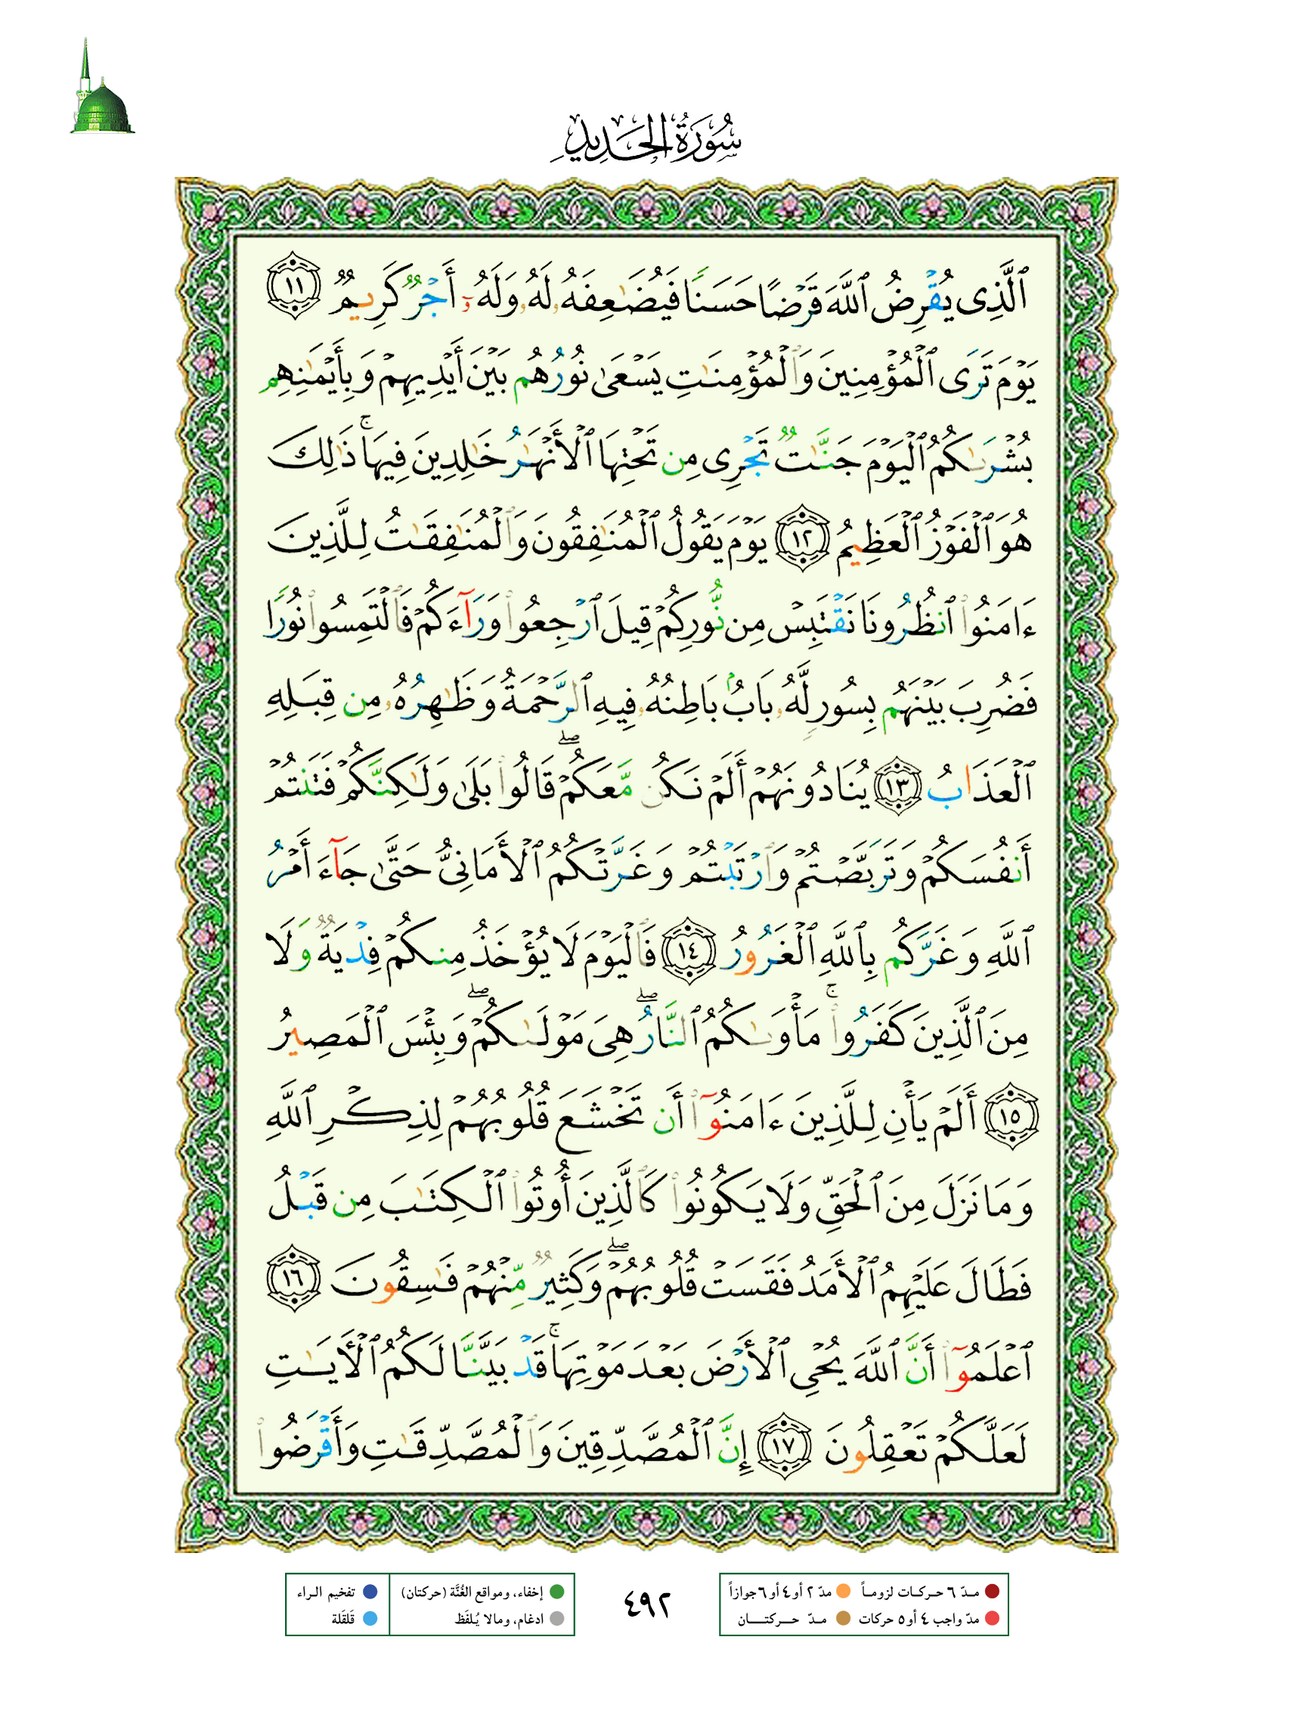 سُورَةُ الحَدِيدِ
ٱلَّذِى يُقْرِضُ ٱللَّهَ قَرْضًا حَسَنًا فَيُضَٰعِفَهُۥ لَهُۥ وَلَهُۥٓ أَجْرٌ كَرِيمٌ ١١
يَوْمَ تَرَى ٱلْمُؤْمِنِينَ وَٱلْمُؤْمِنَٰتِ يَسْعَىٰ نُورُهُم بَيْنَ أَيْدِيهِمْ وَبِأَيْمَٰنِهِم
بُشْرَىٰكُمُ ٱلْيَوْمَ جَنَّٰتٌ تَجْرِى مِن تَحْتِهَا ٱلْأَنْهَٰرُ خَٰلِدِينَ فِيهَا ۚ ذَٰلِكَ
هُوَ ٱلْفَوْزُ ٱلْعَظِيمُ ١٢ يَوْمَ يَقُولُ ٱلْمُنَٰفِقُونَ وَٱلْمُنَٰفِقَٰتُ لِلَّذِينَ
ءَامَنُوا۟ ٱنظُرُونَا نَقْتَبِسْ مِن نُّورِكُمْ قِيلَ ٱرْجِعُوا۟ وَرَآءَكُمْ فَٱلْتَمِسُوا۟ نُورًا
فَضُرِبَ بَيْنَهُم بِسُورٍ لَّهُۥ بَابٌۢ بَاطِنُهُۥ فِيهِ ٱلرَّحْمَةُ وَظَٰهِرُهُۥ مِن قِبَلِهِ
ٱلْعَذَابُ ١٣ يُنَادُونَهُمْ أَلَمْ نَكُن مَّعَكُمْ ۖ قَالُوا۟ بَلَىٰ وَلَٰكِنَّكُمْ فَتَنتُمْ
أَنفُسَكُمْ وَتَرَبَّصْتُمْ وَٱرْتَبْتُمْ وَغَرَّتْكُمُ ٱلْأَمَانِىُّ حَتَّىٰ جَآءَ أَمْرُ
ٱللَّهِ وَغَرَّكُم بِٱللَّهِ ٱلْغَرُورُ ١٤ فَٱلْيَوْمَ لَا يُؤْخَذُ مِنكُمْ فِدْيَةٌ وَلَا
مِنَ ٱلَّذِينَ كَفَرُوا۟ ۚ مَأْوَىٰكُمُ ٱلنَّارُ ۖ هِىَ مَوْلَىٰكُمْ ۖ وَبِئْسَ ٱلْمَصِيرُ
١٥ أَلَمْ يَأْنِ لِلَّذِينَ ءَامَنُوٓا۟ أَن تَخْشَعَ قُلُوبُهُمْ لِذِكْرِ ٱللَّهِ
وَمَا نَزَلَ مِنَ ٱلْحَقِّ وَلَا يَكُونُوا۟ كَٱلَّذِينَ أُوتُوا۟ ٱلْكِتَٰبَ مِن قَبْلُ
فَطَالَ عَلَيْهِمُ ٱلْأَمَدُ فَقَسَتْ قُلُوبُهُمْ ۖ وَكَثِيرٌ مِّنْهُمْ فَٰسِقُونَ ١٦
ٱعْلَمُوٓا۟ أَنَّ ٱللَّهَ يُحْىِ ٱلْأَرْضَ بَعْدَ مَوْتِهَا ۚ قَدْ بَيَّنَّا لَكُمُ ٱلْءَايَٰتِ
لَعَلَّكُمْ تَعْقِلُونَ ١٧ إِنَّ ٱلْمُصَّدِّقِينَ وَٱلْمُصَّدِّقَٰتِ وَأَقْرَضُوا۟
مدّ ٦ حركات لزوماً مدّ ٢ أو ٤ أو ٦ جوازاً
مدّ واجب ٤ أو ٥ حركات مدّ حركتان
٤٩٢
إخفاء، ومواقع الغُنَّة (حركتان) تفخيم الراء
ادغام، ومالا يُلفَظ قَلقَلة